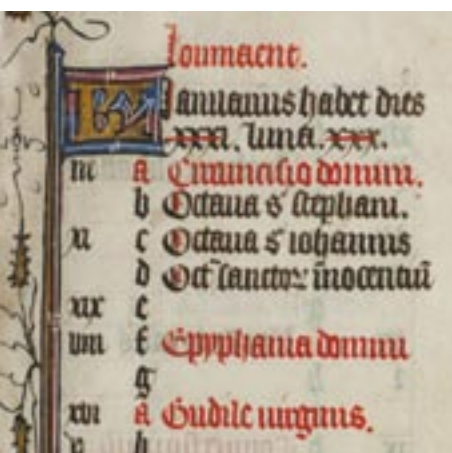 Loumaent.
KL Januarius habet dies
xxxi. luna. xxx.
iii a Circumcisio domini.
b Octaua s' stephani.
xi c Octaua s' iohannis
d Oct' sanctor inocentiū
xix e
viii f Epyphania domini
g
xvi a Gudile uirginis.
v b